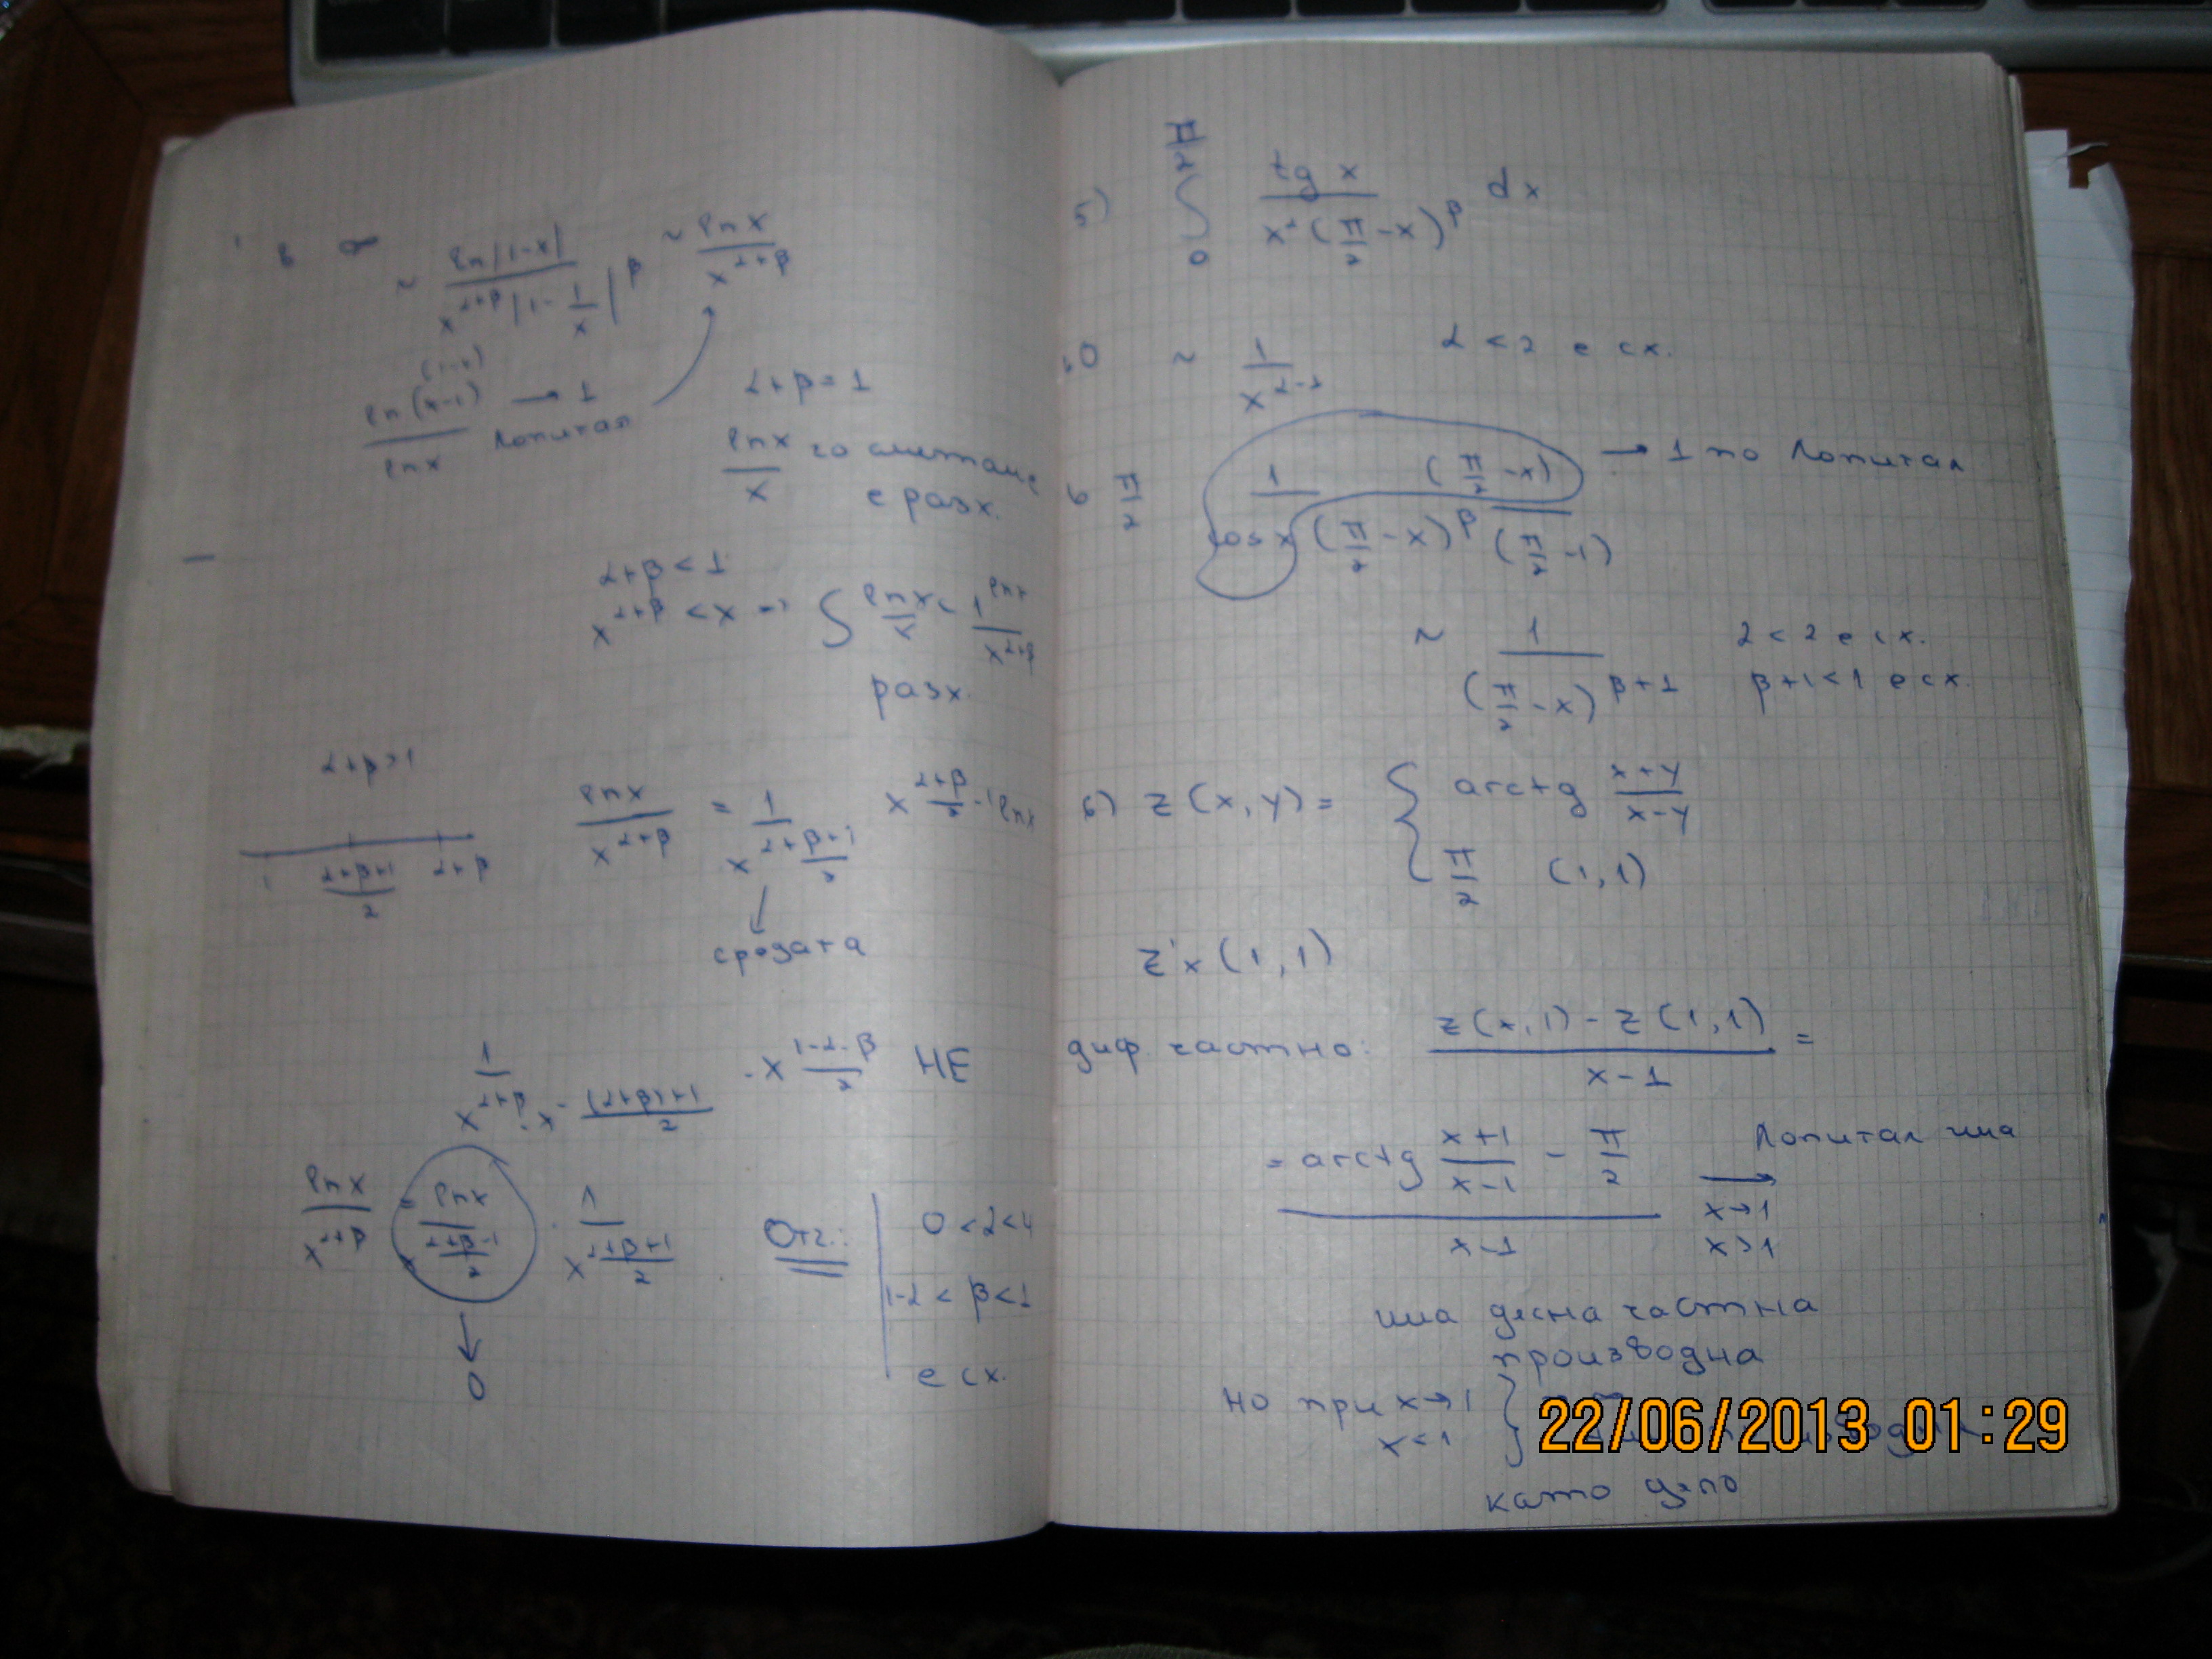 в ∞ ~ ln|1-x| / x^{α+β} |1 - 1/x|^β ~ ln x / x^{α+β}
(1-x)
ln(x-1) / ln x → 1 Лопитал
α+β=1
ln x / x го сметаме
е разх.
α+β<1
x^{α+β} < x → ∫ ln x / x < 1 ln x / x^{α+β}
разх.
α+β>1
1 (α+β+1)/2 α+β
ln x / x^{α+β} = 1 / x^{(α+β+1)/2} x^{(α+β)/2 - 1} ln x
средата
1 / x^{α+β} · x^{-((α+β)+1)/2} · x^{(1-α-β)/2} НЕ
ln x / x^{α+β} = ln x / x^{(α+β-1)/2} · 1 / x^{(α+β+1)/2}
↓
0
Отг.: 0<α<4
1-α<β<1
е сх.
5) ∫_0^{π/2} tg x / x^α (π/2 - x)^β dx
в 0 ~ 1 / x^{α-1} α<2 е сх.
в π/2 1 / cos x (π/2 - x)^β (π/2 - x) / (π/2 - 1) → 1 по Лопитал
~ 1 / (π/2 - x)^{β+1} α<2 е сх.
β+1<1 е сх.
6) z(x,y) = { arctg (x+y)/(x-y)
π/2 (1,1)
z'x (1,1)
диф. частно: z(x,1) - z(1,1) / x-1 =
= arctg (x+1)/(x-1) - π/2 / x-1 → Лопитал има
x→1
x>1
има дясна частна
производна
но при x→1
x<1
като цяло
22/06/2013 01:29